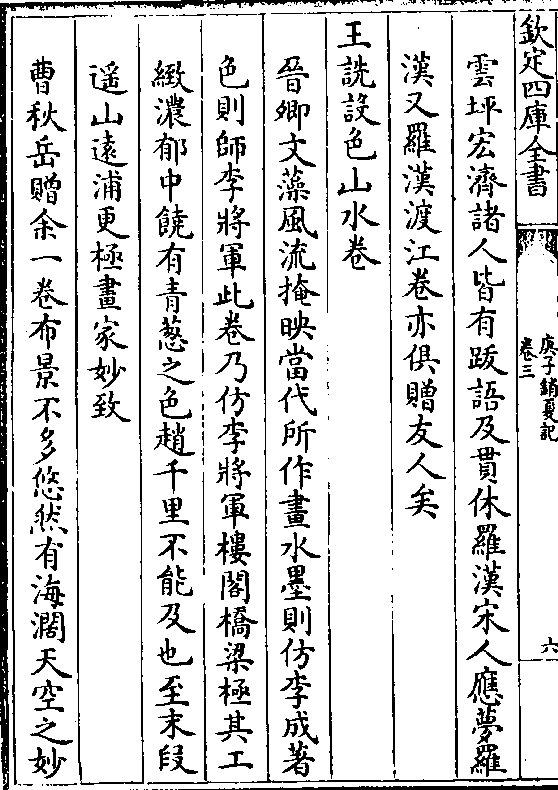 欽定四庫全書
庚子銷夏記
卷三
六
雲坪宏濟諸人皆有跋語及貫休羅漢宋人應夢羅
漢又羅漢渡江卷亦俱贈友人矣
王詵設色山水卷
晉卿文藻風流掩映當代所作畫水墨則仿李成著
色則師李將軍此卷乃仿李將軍樓閣橋梁極其工
緻濃郁中饒有青蔥之色趙千里不能及也至末段
遥山遠浦更極畫家妙致
曹秋岳贈余一卷布景不多悠然有海濶天空之妙